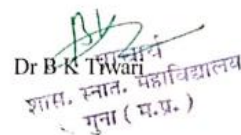 Dr B K Tiwari
प्राचार्य
शास. स्नात. महाविद्यालय
गुना ( म.प्र. )